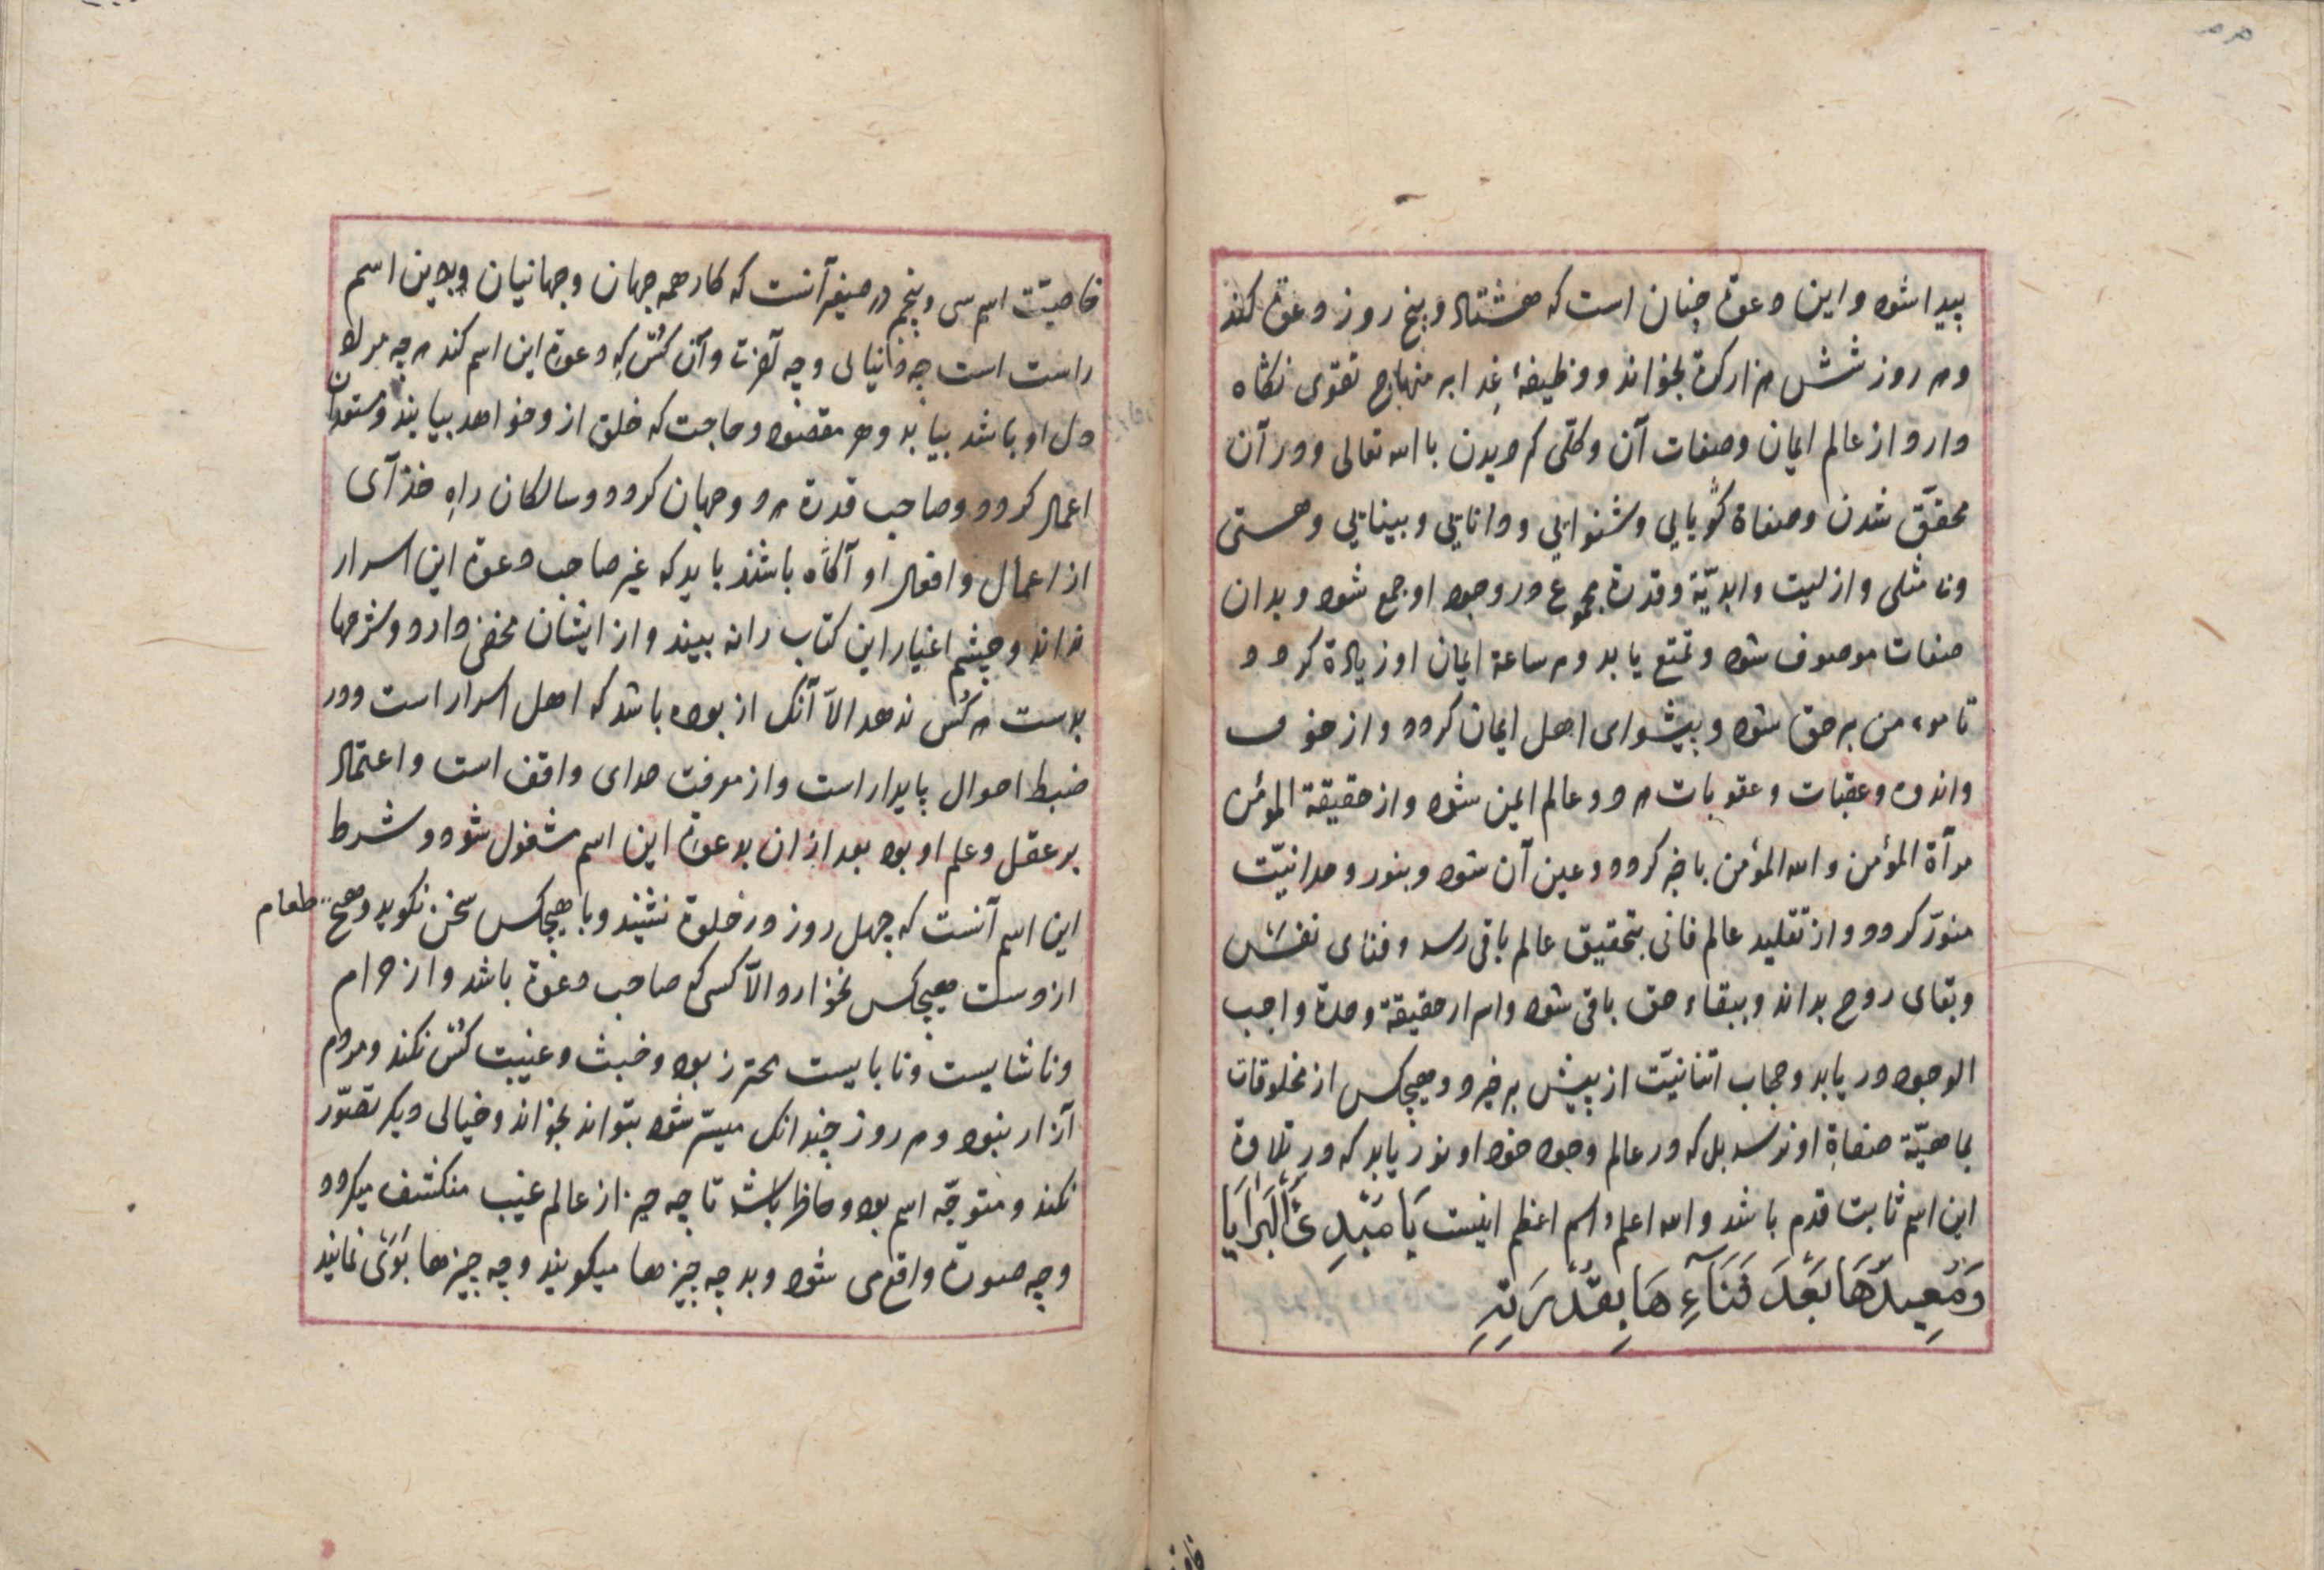 پیدا شود و این دعوة چنان است که هشتاد و پنج روز دعوة کند
و هر روز شش هزار کرة بخواند و وظیفهٔ غدا بر منهاج تقوی نگاه
دارد و از عالم ایمان و صفات آن و کلّی کرویدن با الله تعالی و در آن
محقّق شدن و صفاة گویایی و شنوایی و دانایی و بینایی و هستی
و نا مثلی و ازلیت و ابدیّة و قدرة مجموع در وجود او جمع شود و بدان
صفات موصوف شود و تمتع یابد و هر ساعة ایمان او زیادة کردد
تا موءمن برحق شود و پیشوای اهل ایمان کردد و از خوف
و اندوه و عقبات و عقوبات هر دو عالم ایمن شود و از حقیقة المؤمن
مرآة المؤمن و الله المؤمن باخبر کردد و عین آن شود و بنور وحدانیّت
منوّر کردد و از تقلید عالم فانی بتحقیق عالم باقی رسد و فنای نفسش
و بقای روح بداند و ببقاء حق باقی شود و اسرار حقیقة وحدة واجب
الوجود دریابد و حجاب اثنانیّت از پیش برخیزد و هیچکس از مخلوقات
بماهیّة صفاة او نرسد بل که در عالم وجود خود او نور یابد که در تلاوة
این اسم ثابت قدم باشد والله اعلم و اسم اعظم اینست یَا مُبْدِئَ الْبَرَایَا
وَمُعِیدَهَا بَعْدَ فَنَآءِهَا بِقُدْرَتِهِ
خاصیّت اسم سی و پنجم در صیفه آنست که کار همه جهان و جهانیان بدین اسم
راست است چه دنیایی و چه آخرت و آن کس که دعوة این اسم کند هر چه مراد
دل او باشد بیابد و هر مقصود و حاجت که خلق ازو خواهد بیابند و مستعدان
اعمال کردد و صاحب قدرة هر دو جهان کردد و سالکان راه خدآی
از اعمال و افعال او آگاه باشند باید که غیر صاحب دعوة این اسرار
نداند و چشم اغیار این کتاب را نه بیند و از ایشان مخفی دارد و شرحها
بدست هر کس ندهد الاّ آنک ازبوده باشد که اهل اسرار است و در
ضبط احوال پایدار است و از معرفت خدای واقف است و اعتماد
بر عقل و علم او بود بعد از ان بدعوة این اسم مشغول شود و شرط
این اسم آنست که چهل روز در خلوة نشیند و با هیچکس سخن نکوید و هیچ طعام
از دست هیچکس نخورد الاّ کسی که صاحب دعوة باشد و از حرام
و ناشایست و نابایست محترز بود و خبث و غیبت کس نکند و مردم
آزار نبود و هر روز چندانک میسّر شود بتواند بخواند و خیالی دیکر تصوّر
نکند و متوجّه اسم بود و حاظر باشد تا چه چیز از عالم غیب منکشف میکردد
و چه صورة واقع می شود و بد چه چیزها میکویند و چه چیزها بَوَیْ نمایند